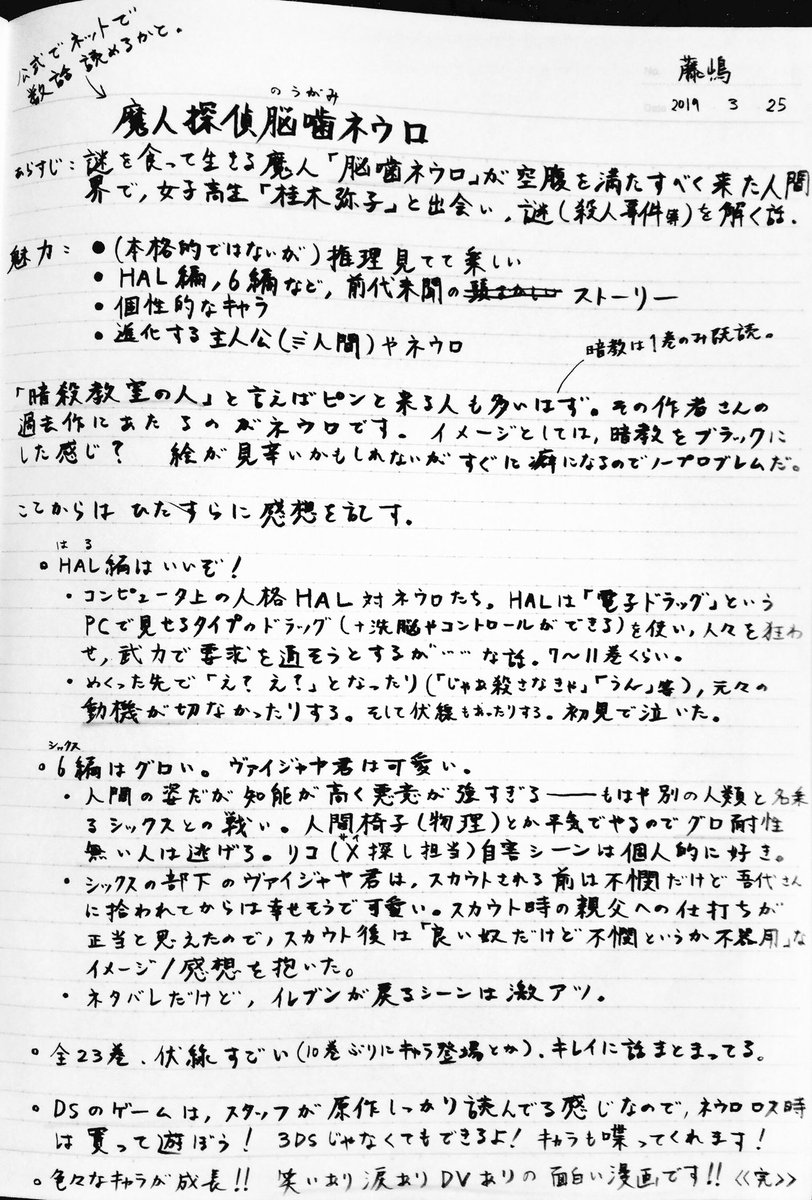 公式でネットで
数話読めるかと。
藤嶋
2019 3 25
のうがみ
魔人探偵脳噛ネウロ
あらすじ：謎を食って生きる魔人「脳噛ネウロ」が空腹を満たすべく来た人間
界で、女子高生「桂木弥子」と出会い、謎(殺人事件等)を解く話.
魅力：●(本格的ではないが)推理見てて楽しい
● HAL編,6編など,前代未聞の ストーリー
● 個性的なキャラ
● 進化する主人公(≡人間)やネウロ
暗教は1巻のみ既読。
「暗殺教室の人」と言えばピンと来る人も多いはず。その作者さんの
過去作にあたるのがネウロです。 イメージとしては,暗教をブラックに
した感じ? 絵が見辛いかもしれないがすぐに癖になるのでノープロブレムだ。
ここからはひたすらに感想を記す。
はる
○ HAL編はいいぞ!
・コンピュータ上の人格HAL対ネウロたち。HALは「電子ドラッグ」という
PCで見せるタイプのドラッグ(+洗脳やコントロールができる)を使い,人々を狂わ
せ,武力で要求を通そうとするが……な話。7〜11巻くらい。
・めくった先で「え?え?」となったり(「じゃあ殺さなきゃ」「うん」等),元々の
動機が切なかったりする。そして伏線もあったりする。初見で泣いた。
シックス
○ 6編はグロい。ヴァイジャヤ君は可愛い。
・人間の姿だが知能が高く悪意が強すぎる――もはや別の人類と名乗
るシックスとの戦い。人間椅子(物理)とか平気でやるのでグロ耐性
サイ
無い人は逃げろ。リコ(X探し担当)自害シーンは個人的に好き。
・シックスの部下のヴァイジャヤ君は,スカウトされる前は不憫だけど吾代さん
に拾われてからは幸せそうで可愛い。スカウト時の親父への仕打ちが
正当と思えたので,スカウト後は「良い奴だけど不憫というか不器用」な
イメージ/感想を抱いた。
・ネタバレだけど,イレブンが戻るシーンは激アツ。
○ 全23巻.伏線すごい(10巻ぶりにキャラ登場とか).キレイに話まとまってる。
○ DSのゲームは,スタッフが原作しっかり読んでる感じなので,ネウロロス時
は買って遊ぼう! 3DSじゃなくてもできるよ! キャラも喋ってくれます!
○ 色々なキャラが成長!! 笑いあり涙ありDVありの面白い漫画です!!《完》